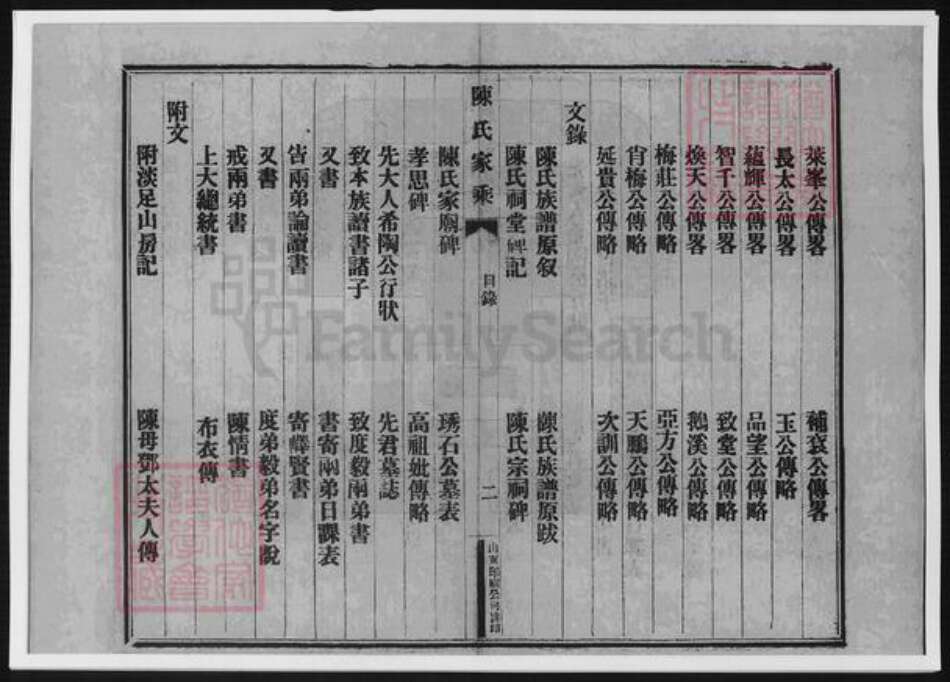 萊峯公傳畧
補袞公傳畧
長太公傳畧
玉公傳略
蘊輝公傳畧
品望公傳略
智千公傳畧
致堂公傳略
煥天公傳畧
鵝溪公傳略
梅莊公傳略
亞方公傳略
肖梅公傳略
天鵬公傳略
延貴公傳略
次訓公傳略
文錄
陳氏族譜原叙
陳氏族譜原跋
陳氏祠堂碑記
陳氏宗祠碑
陳氏家乘
目錄
二
陳氏家廟碑
琇石公墓表
孝思碑
高祖妣傳略
先大人希陶公行狀
先君墓誌
致本族讀書諸子
致度毅兩弟書
又書
書寄兩弟日課表
告兩弟論讀書
寄嶧賢書
又書
度弟毅弟名字說
戒兩弟書
陳情書
上大總統書
布衣傳
附文
附淡足山房記
陳母鄧太夫人傳
FamilySearch